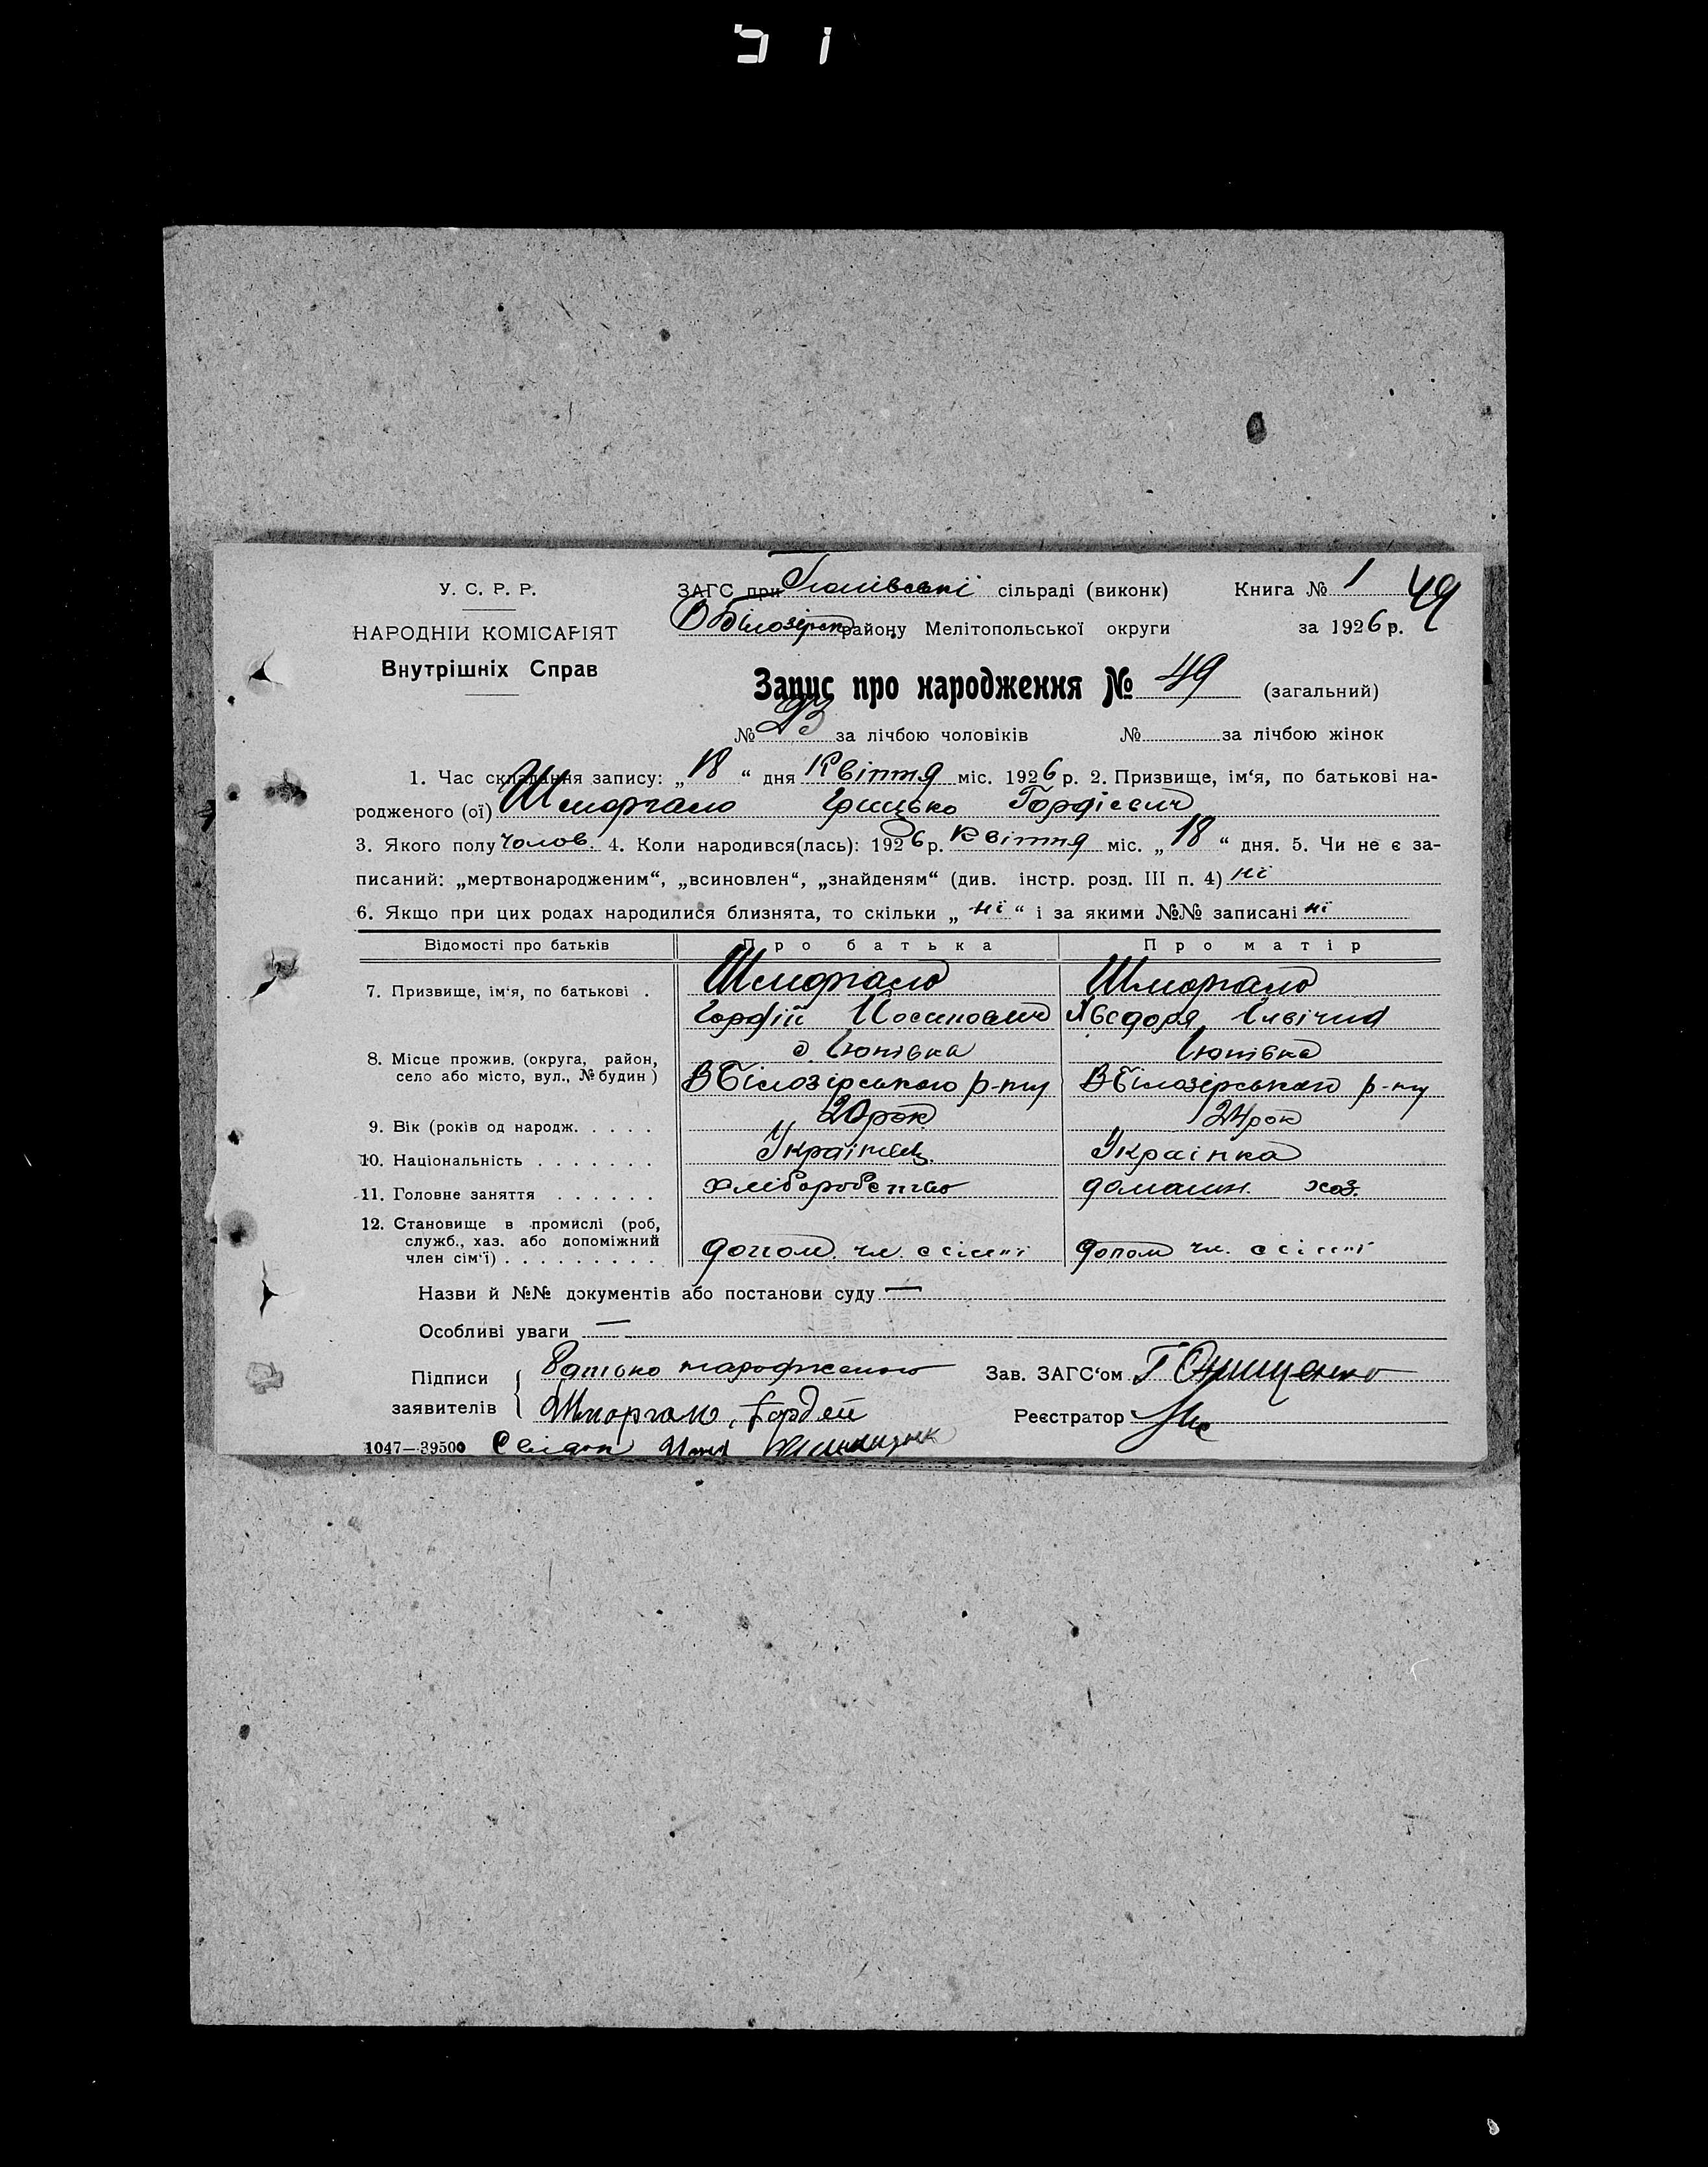 У. С. Р. Р.
НАРОДНІЙ КОМІСАРІЯТ
Внутрішніх Справ
ЗАГС при сільраді (виконк) Книга № 1 49
Білозірськ району Мелітопольської округи за 1926 р.
Запис про народження № 49 (загальний)
№ 23 за лічбою чоловіків № за лічбою жінок
1. Час складання запису: „18“ дня Квіття міс. 1926 р. 2. Призвище, ім‘я, по батькові на-
родженого (ої) Шморгало Грицько Гордієвич
3. Якого полу чолов. 4. Коли народився(лась): 1926 р. Квіття міс. „18“ дня. 5. Чи не є за-
писаний: „мертвонародженим“, „всиновлен“, „знайденям“ (див. інстр. розд. III п. 4) ні
6. Якщо при цих родах народилися близнята, то скільки „ні“ і за якими №№ записані ні
Відомості про батьків Про батька Про матір
7. Призвище, ім‘я, по батькові . Шморгало Шморгало
Гордій Явдоря
8. Місце прожив. (округа, район,
село або місто, вул., № будин) В Білозірського р-ну В Білозірського р-ну
9. Вік (років од народж. . . . . 20 рок 24 рок
10. Національність . . . . . . . Українець Українка
11. Головне заняття . . . . . . хліборобство домашн. хоз.
12. Становище в промислі (роб,
служб., хаз. або допоміжний
член сім‘ї) . . . . . . . . . допом. чл. ссімї допом чл. ссімї
Назви й №№ документів або постанови суду —
Особливі уваги —
Підписи Батько народженого Зав. ЗАГС‘ом Г Онищенко
заявителів Шморгало Гордей Реєстратор
1047—39500 Свідок